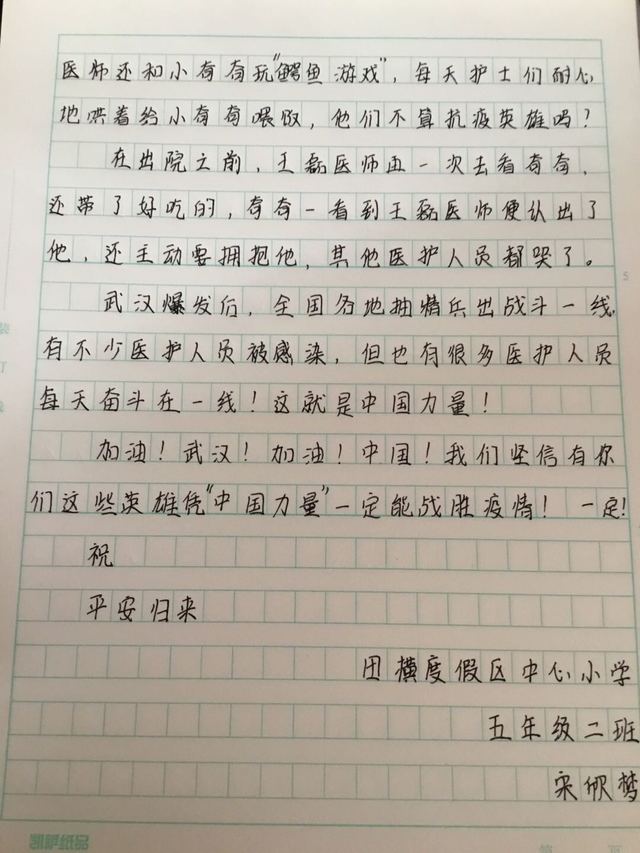 医师还和小有有玩"鳄鱼游戏"，每天护士们耐心
地哄着给小有有喂饭，他们不算抗疫英雄吗？
在出院之前，王磊医师再一次去看有有，
还带了好吃的，有有一看到王磊医师便认出了
他，还主动要拥抱他，其他医护人员都哭了。
武汉爆发后，全国各地抽精兵出战斗一线，
有不少医护人员被感染，但也有很多医护人员
每天奋斗在一线！这就是中国力量！
加油！武汉！加油！中国！我们坚信有你
们这些英雄凭"中国力量"一定能战胜疫情！一定！
祝
平安归来
田横度假区中心小学
五年级二班
宋欣梦
5
装
订
第 页